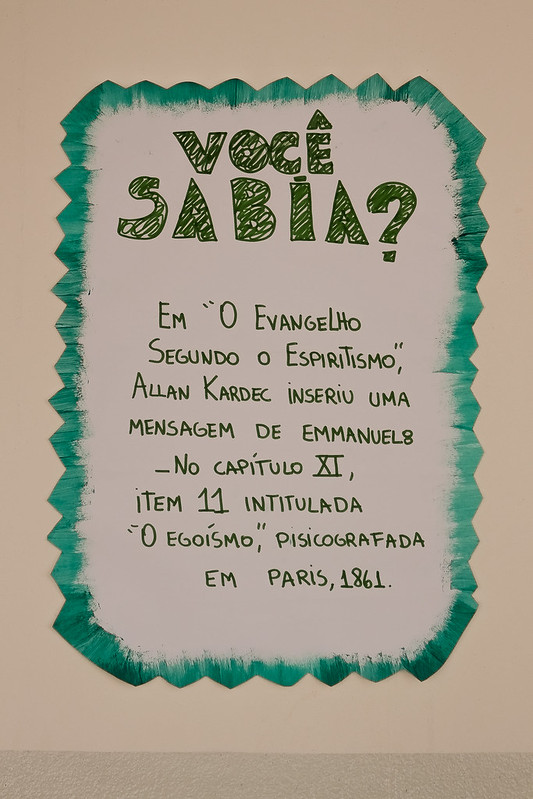 VOCÊ
SABIA?
EM "O EVANGELHO
SEGUNDO O ESPIRITISMO",
ALLAN KARDEC INSERIU UMA
MENSAGEM DE EMMANUEL:
_NO CAPÍTULO XI,
ITEM 11 INTITULADA
"O EGOÍSMO", PISICOGRAFADA
EM PARIS, 1861.